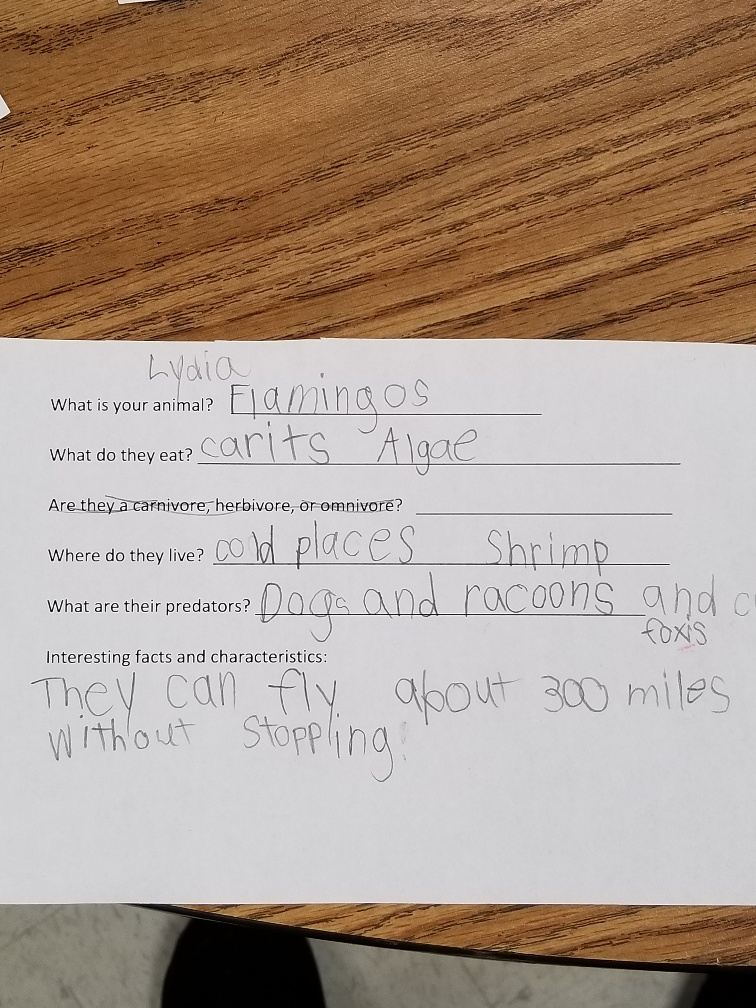 Lydia
What is your animal? Flamingos
What do they eat? carits Algae
Are they a carnivore, herbivore, or omnivore?
Where do they live? cold places Shrimp
What are their predators? Dogs and racoons and
foxis
Interesting facts and characteristics:
They can fly about 300 miles
without stoppling.